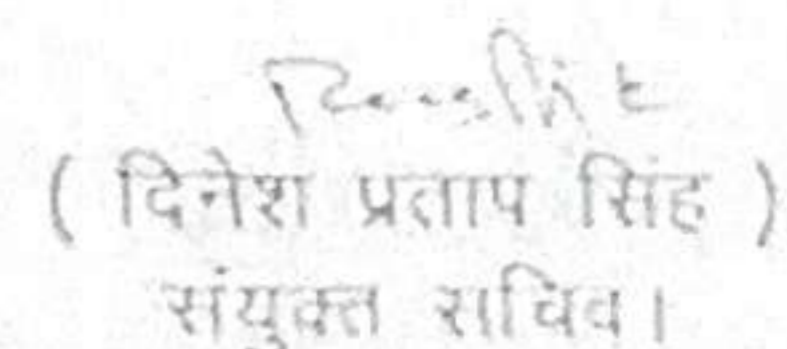 ( दिनेश प्रताप सिंह )
संयुक्त सचिव।